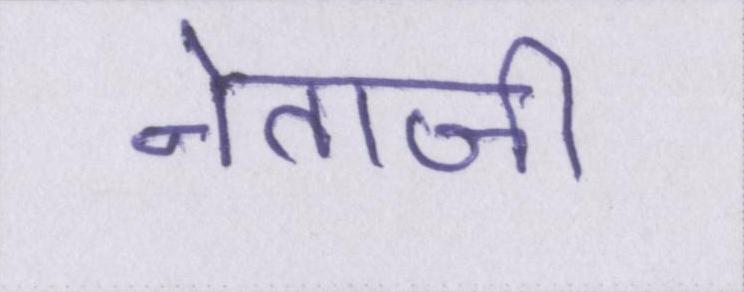 नेताजी